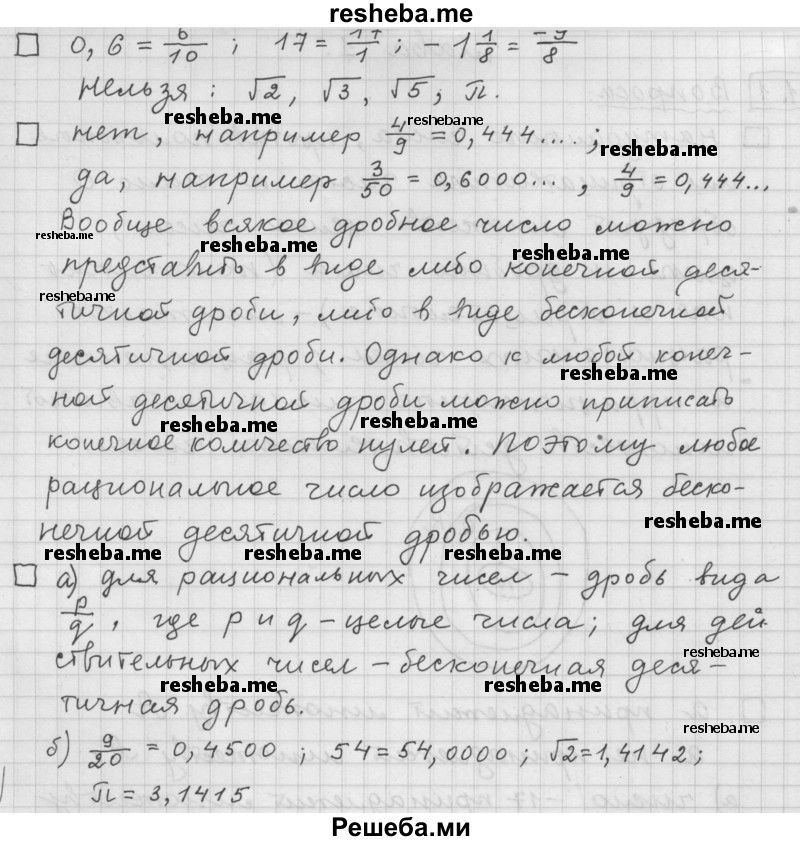 resheba.me
0,6 = 6/10 ; 17 = 17/1 ; -1 1/8 = -9/8
Нельзя : √2, √3, √5; π.
resheba.me resheba.me
нет, например 4/9 = 0,444.... ;
resheba.me
да, например 3/50 = 0,6000... , 4/9 = 0,444...
Вообще всякое дробное число можно
resheba.me resheba.me resheba.me
представить в виде либо конечной деся-
resheba.me
тичной дроби, либо в виде бесконечной
десятичной дроби. Однако к любой конеч-
resheba.me
ной десятичной дроби можно приписать
resheba.me resheba.me
конечное количество нулей. Поэтому любое
рациональное число изображается беско-
resheba.me
нечной десятичной дробью.
resheba.me resheba.me resheba.me
а) для рациональных чисел – дробь вида
p/q , где p и q – целые числа; для дей
ствительных чисел – бесконечная деся-
resheba.me
resheba.me resheba.me
тичная дробь.
resheba.me
б) 9/20 = 0,4500 ; 54 = 54,0000 ; √2 = 1,4142 ;
π = 3,1415
Решеба.ми